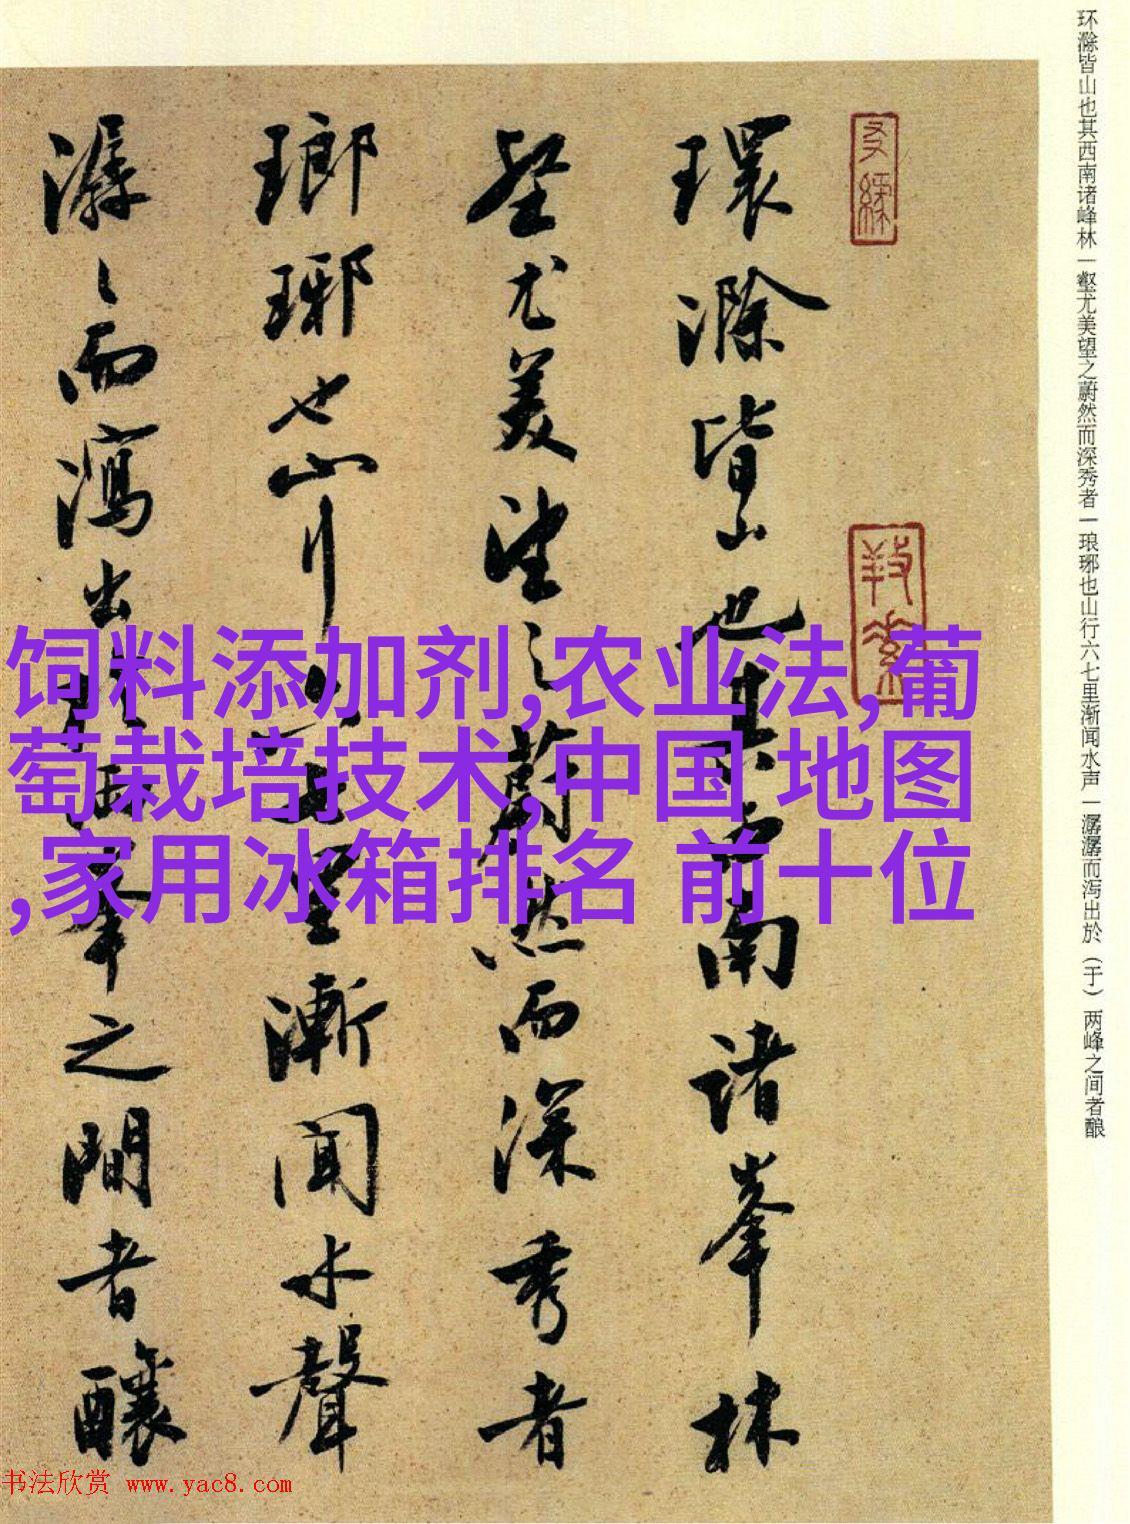 环滁皆山也其西南诸峰林一壑尤美望之蔚然而深秀者一琅琊也山行六七里渐闻水声一潺潺而泻出於（于）两峰之间者酿
環滁皆山也其西南諸峯林
壑尤美望之蔚然而深秀者
瑯琊也山行六七里漸聞水聲
潺〻而瀉出於兩峯之間者釀
饲料添加剂,农业法,葡
萄栽培技术,中国 地图
,家用冰箱排名 前十位
书法欣赏 www.yac8.com